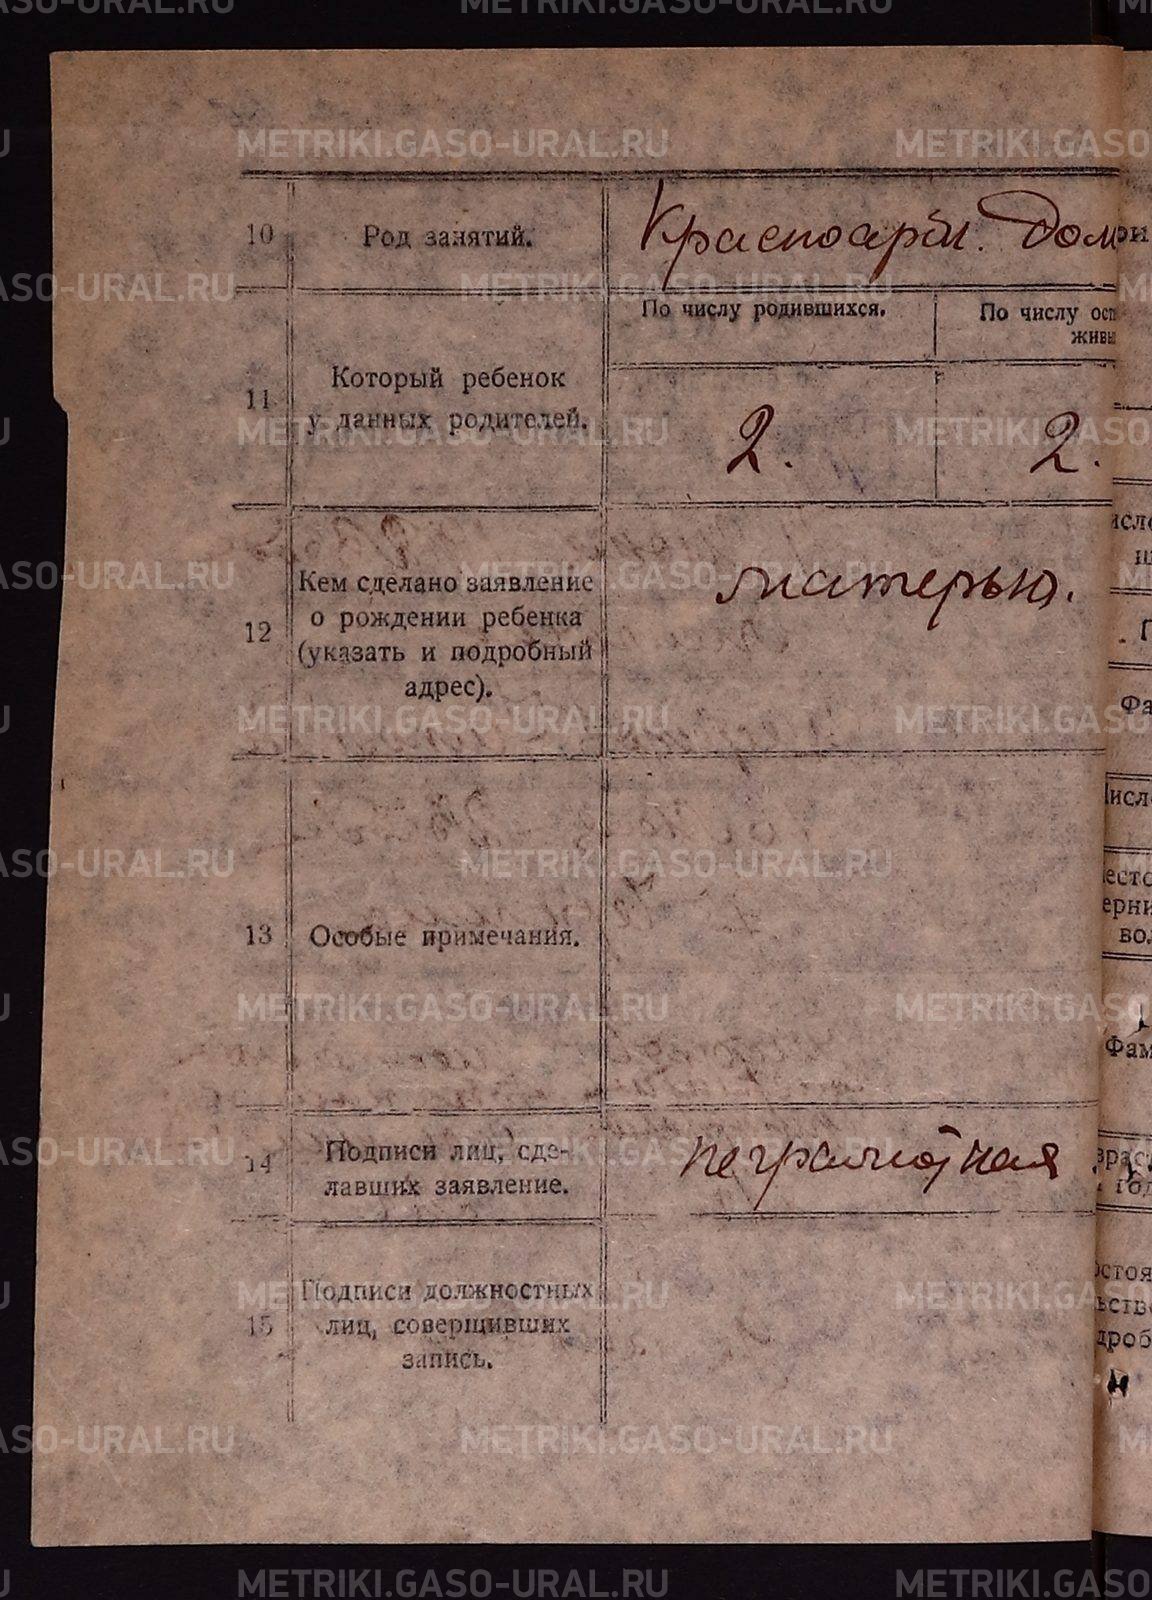 METRIKI.GASO-URAL.RU
10 Род занятий. Красноарм. Дом
По числу родившихся. По числу ост
живы
11 Который ребенок
у данных родителей. 2. 2.
12 Кем сделано заявление
о рождении ребенка
(указать и подробный
адрес). матерью.
13 Особые примечания.
14 Подписи лиц, сде-
лавших заявление. неграмотная
15 Подписи должностных
лиц, совершивших
запись.